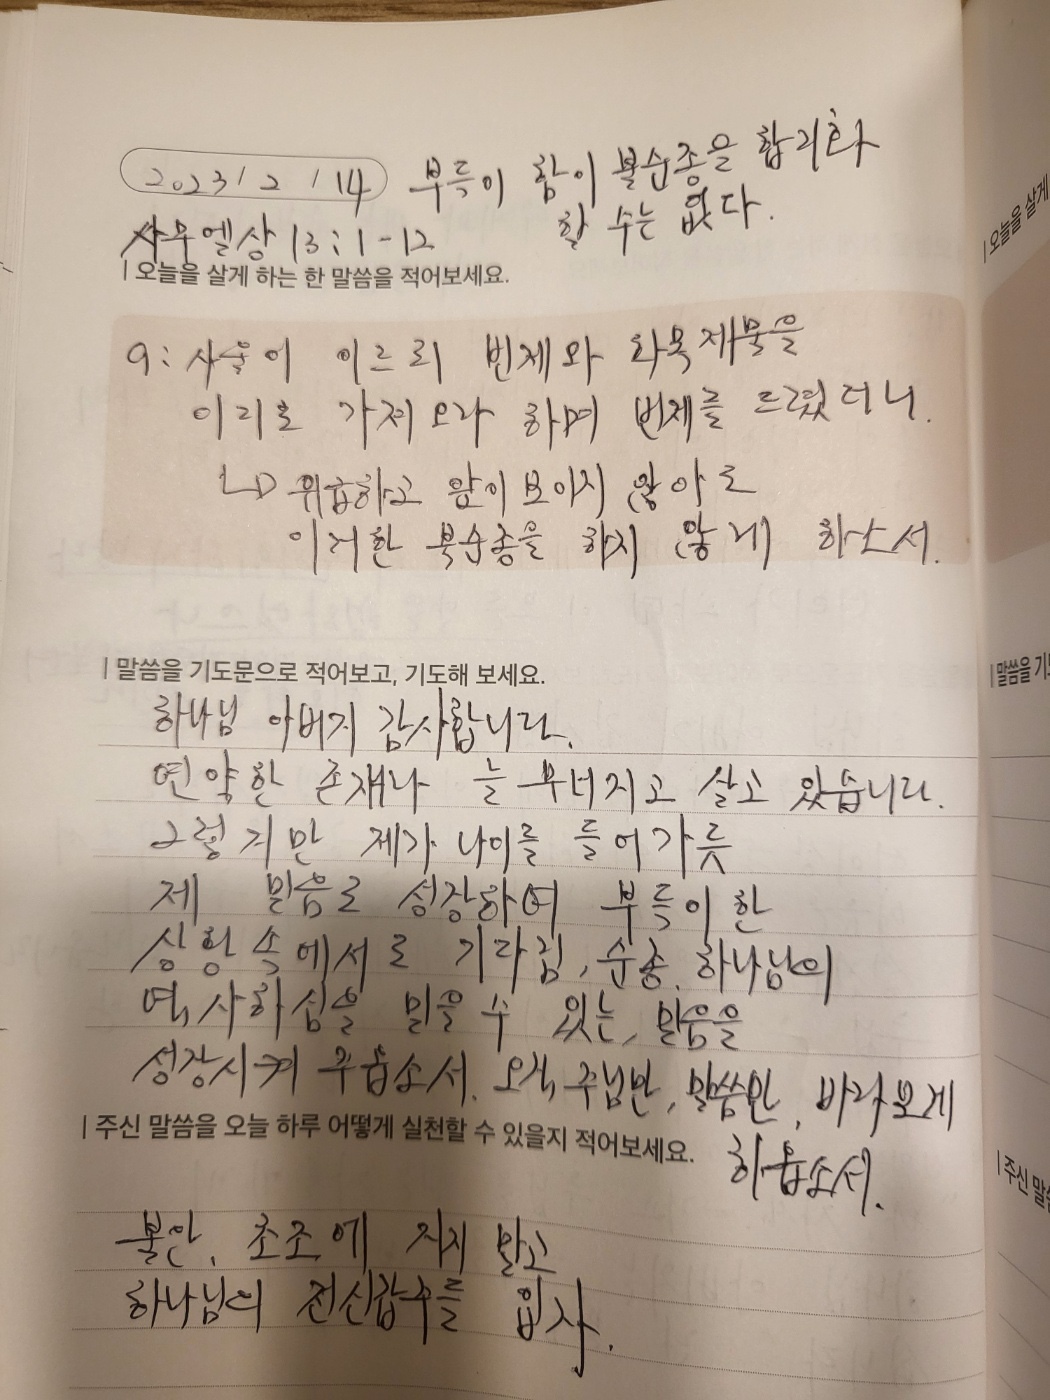 2023 / 2 / 14 부득이 함이 불순종을 합리화
할 수는 없다.
사무엘상 13:1-12
| 오늘을 살게 하는 한 말씀을 적어보세요.
9: 사울이 이르되 번제와 화목제물을
이리로 가져오라 하며 번제를 드렸더니.
↳ 위급하고 앞이 보이지 않아도
이러한 불순종을 하지 않게 하소서.
| 말씀을 기도문으로 적어보고, 기도해 보세요.
하나님 아버지 감사합니다.
연약한 존재나 늘 무너지고 살고 있습니다.
그렇지만 제가 나이를 들어가듯
제 믿음도 성장하여 부득이한
상황 속에서도 기다림, 순종, 하나님의
역사하심을 믿을 수 있는, 믿음을
성장시켜 주옵소서. 오직, 주님만, 말씀만, 바라보게
하옵소서.
| 주신 말씀을 오늘 하루 어떻게 실천할 수 있을지 적어보세요.
불안, 초조에 지지 말고
하나님의 전신갑주를 입자.
| 오늘을 살게
| 말씀을 기도
| 주신 말씀